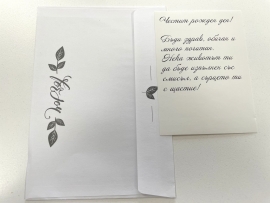 Честит рожден ден!
Бъди здрав, обичан и
много богат.
Нека животът ти
да бъде изпълнен със
смисъл, а сърцето ти
с щастие!